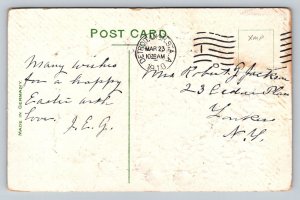 POST CARD.
MAR 23
10 30 AM
1910
XMP
Many wishes
for a happy
Easter with
love. J.E.G.
Mrs Robert J Jackson
23 Cedar Place
Yonkers
N.Y.
MADE IN GERMANY